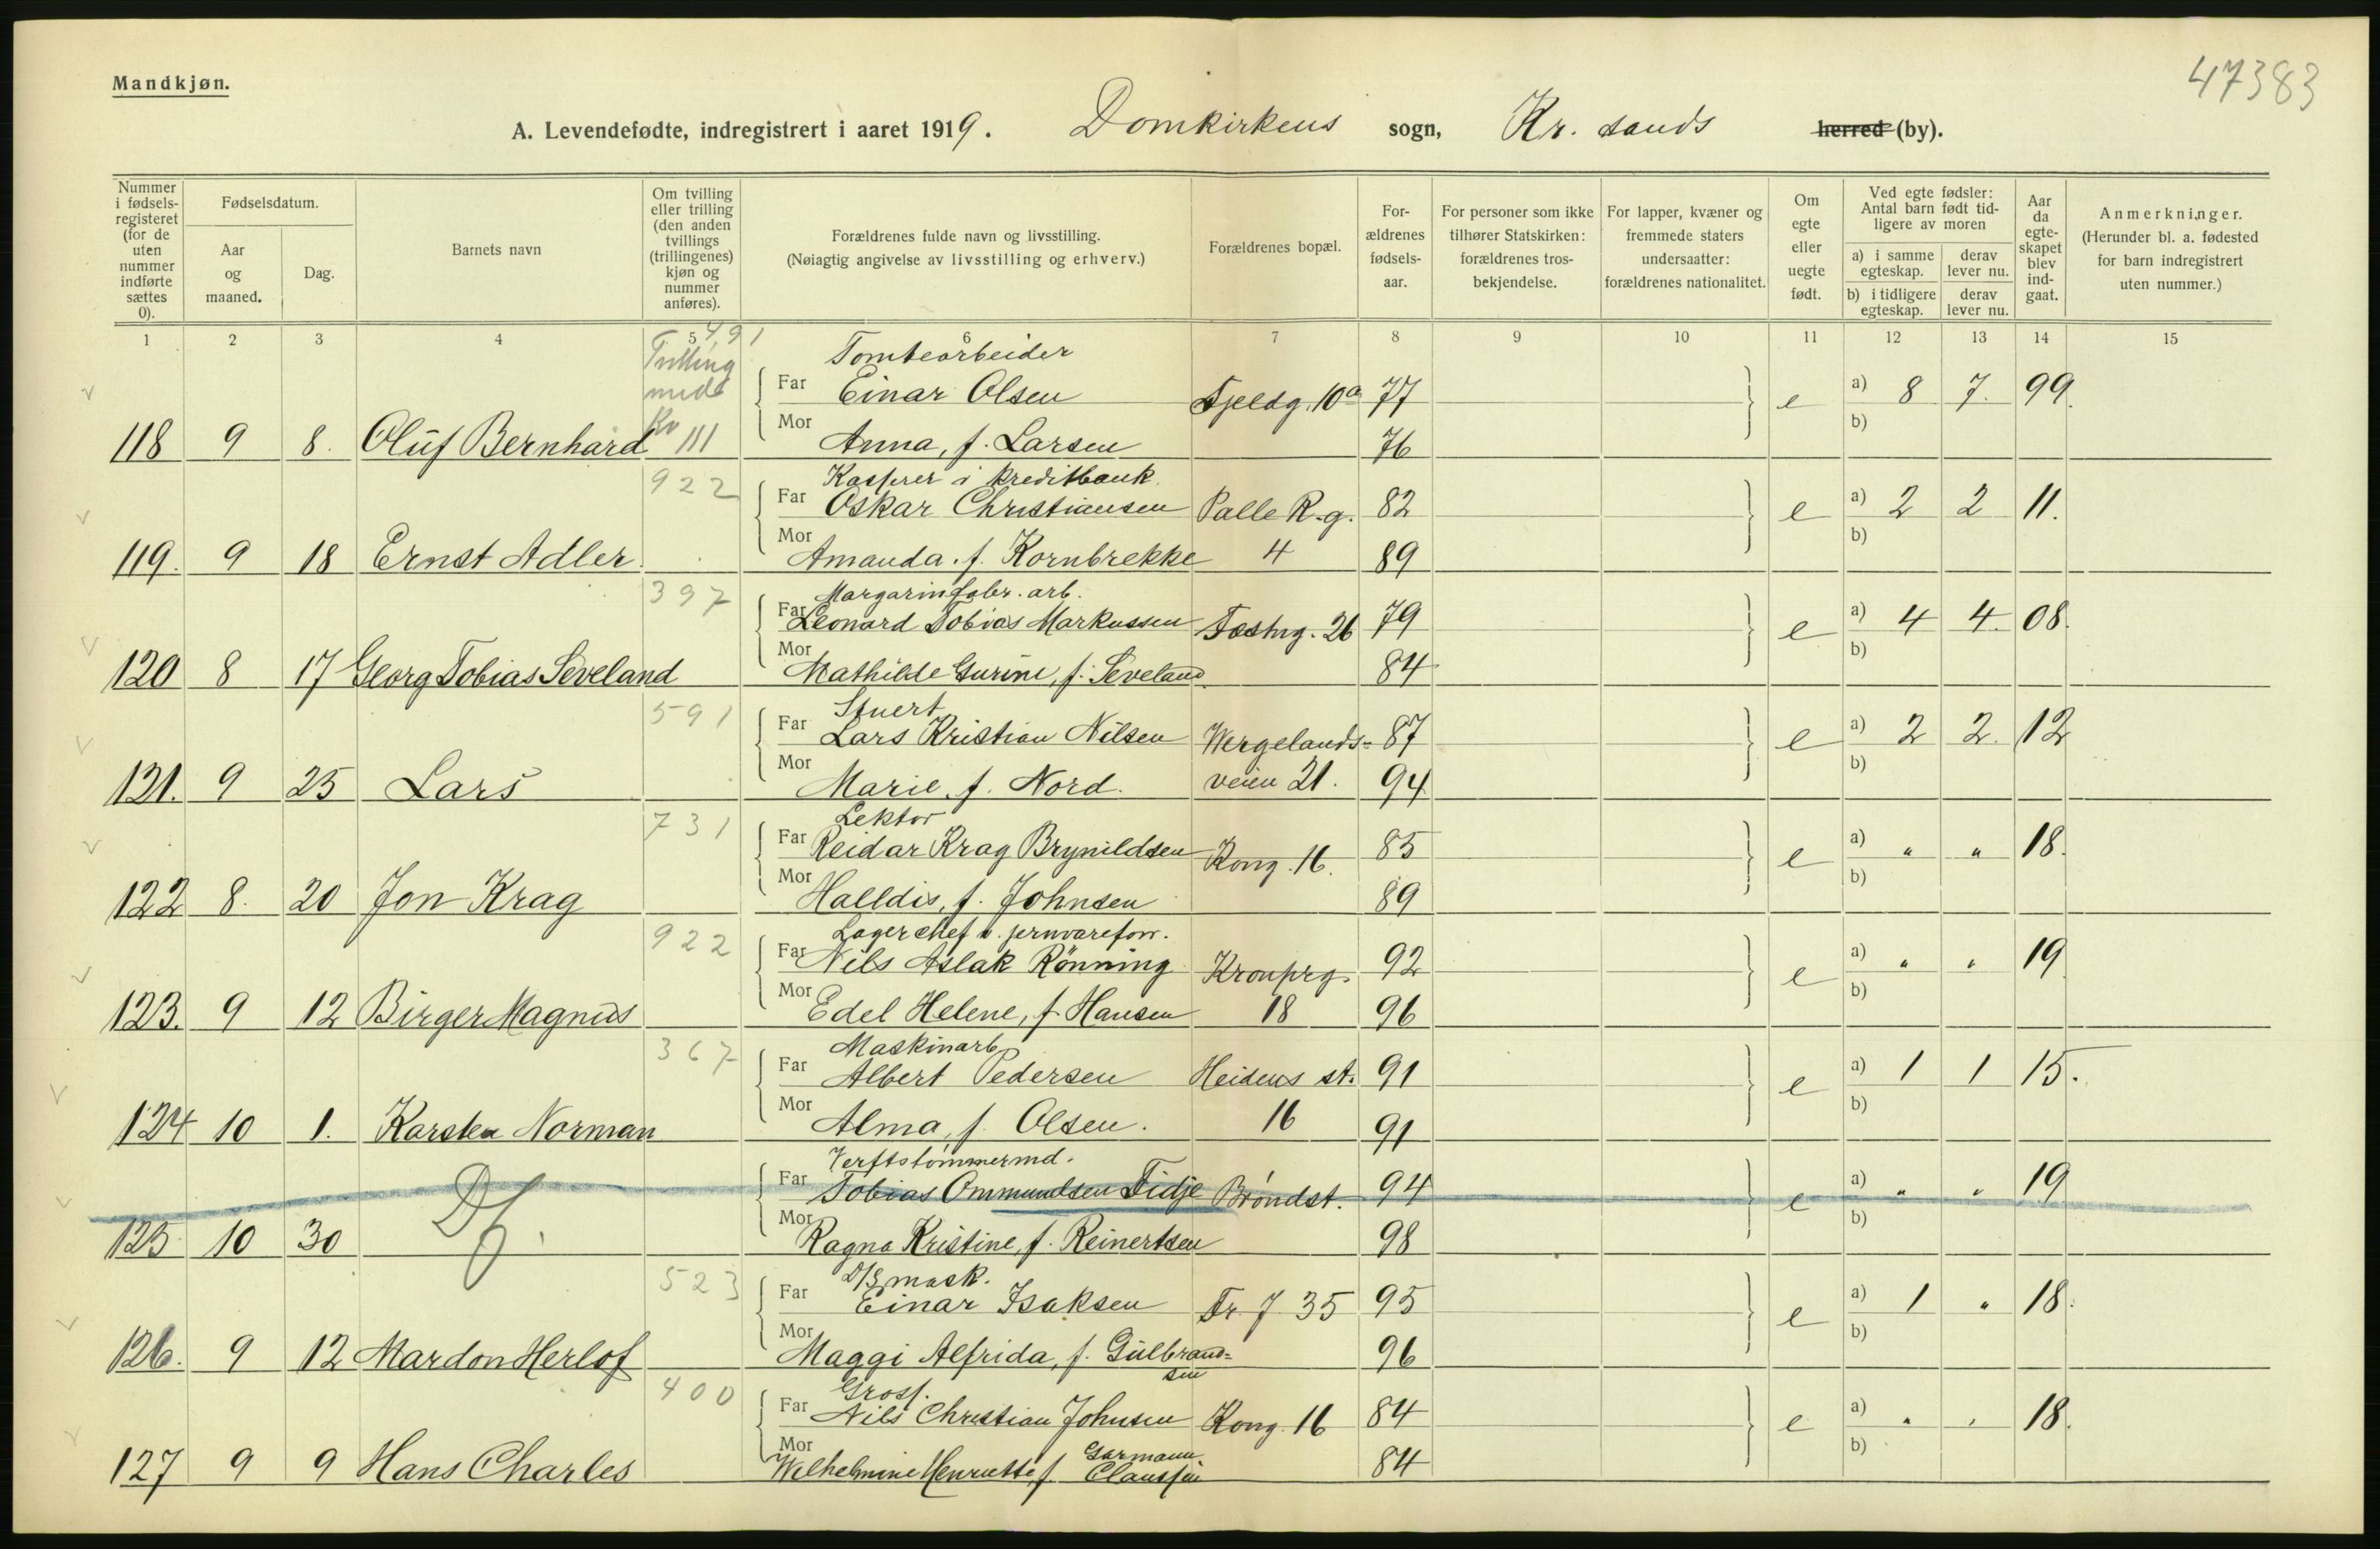 47383
Mandkjøn.
A. Levendefødte, indregistrert i aaret 1919. Domkirkens sogn, Kr. sands herred (by).
Nummer i fødsels-registeret (for de uten nummer indførte sættes 0).
Fødselsdatum.
Aar og maaned.
Dag.
Barnets navn
Om tvilling eller trilling (den anden tvillings (trillingenes) kjøn og nummer anføres).
Forældrenes fulde navn og livsstilling.
(Nøiagtig angivelse av livsstilling og erhverv.)
Forældrenes bopæl.
For-ældrenes fødsels-aar.
For personer som ikke tilhører Statskirken: forældrenes tros-bekjendelse.
For lapper, kvæner og fremmede staters undersaatter: forældrenes nationalitet.
Om egte eller uegte født.
Ved egte fødsler: Antal barn født tid-ligere av moren
a) i samme egteskap.
derav lever nu.
b) i tidligere egteskap.
derav lever nu.
Aar da egte-skapet blev ind-gaat.
Anmerkninger.
(Herunder bl. a. fødested for barn indregistrert uten nummer.)
1 2 3 4 5 6 7 8 9 10 11 12 13 14 15
491
Tvilling med Kv 111
Tomtearbeider
Far Einar Olsen Fjeldg. 10a 77 e a) 8 7. 99.
Mor b)
118 9 8. Oluf Bernhard Anna, f. Larsen 76
922 Kasserer i Kreditbank.
Far Oskar Christiansen Palle R.g. 82 e a) 2 2 11.
Mor b)
119. 9 18 Ernst Adler. Amanda. f. Kornbrekke 4 89
397 Margarinfabr. arb.
Far Leonard Tobias Markussen Fæstng. 26 79 e a) 4 4. 08.
Mor b)
120 8 17 Georg Tobias Seveland Mathilde Gurine, f. Seveland 84
591 Stuert
Far Lars Kristian Nilsen Wergelands= 87 e a) 2 2. 12
Mor b)
121. 9 25 Lars Marie, f. Nord. veien 21. 94
731 Lektor
Far Reidar Krag Brynildsen Kong. 16. 85 e a) " " 18.
Mor b)
122 8. 20 Jon Krag Halldis, f. Johnsen 89
922 Lagerchef v. jernvareforr.
Far Nils Aslak Rönning Kronprg. 92 e a) " " 19
Mor b)
123. 9 12 Birger Magnus Edel Helene, f. Hansen 18 96
367 Maskinarb.
Far Albert Pedersen Heidens st. 91 e a) 1 1 15.
Mor b)
124 10 1. Karsten Norman Alma, f. Olsen. 16 91
Verftstømmermd.
Far Tobias Ommundsen Tidje Brøndst. 94 e a) " " 19
Mor b)
125 10 30 Df. Ragna Kristine, f. Reinertsen 98
523 D/S mask.
Far Einar Isaksen Tr. 7 35 95 e a) 1 " 18.
Mor b)
126. 9 12 Mardon Herlof Maggi Alfrida, f. Gulbrand=
sen 96
400 Gross.
Far Nils Christian Johnsen Kong. 16 84 e a) " " 18.
Mor Garmann b)
127 9 9 Hans Charles Wilhelmine Henriette, f. Claussen 84